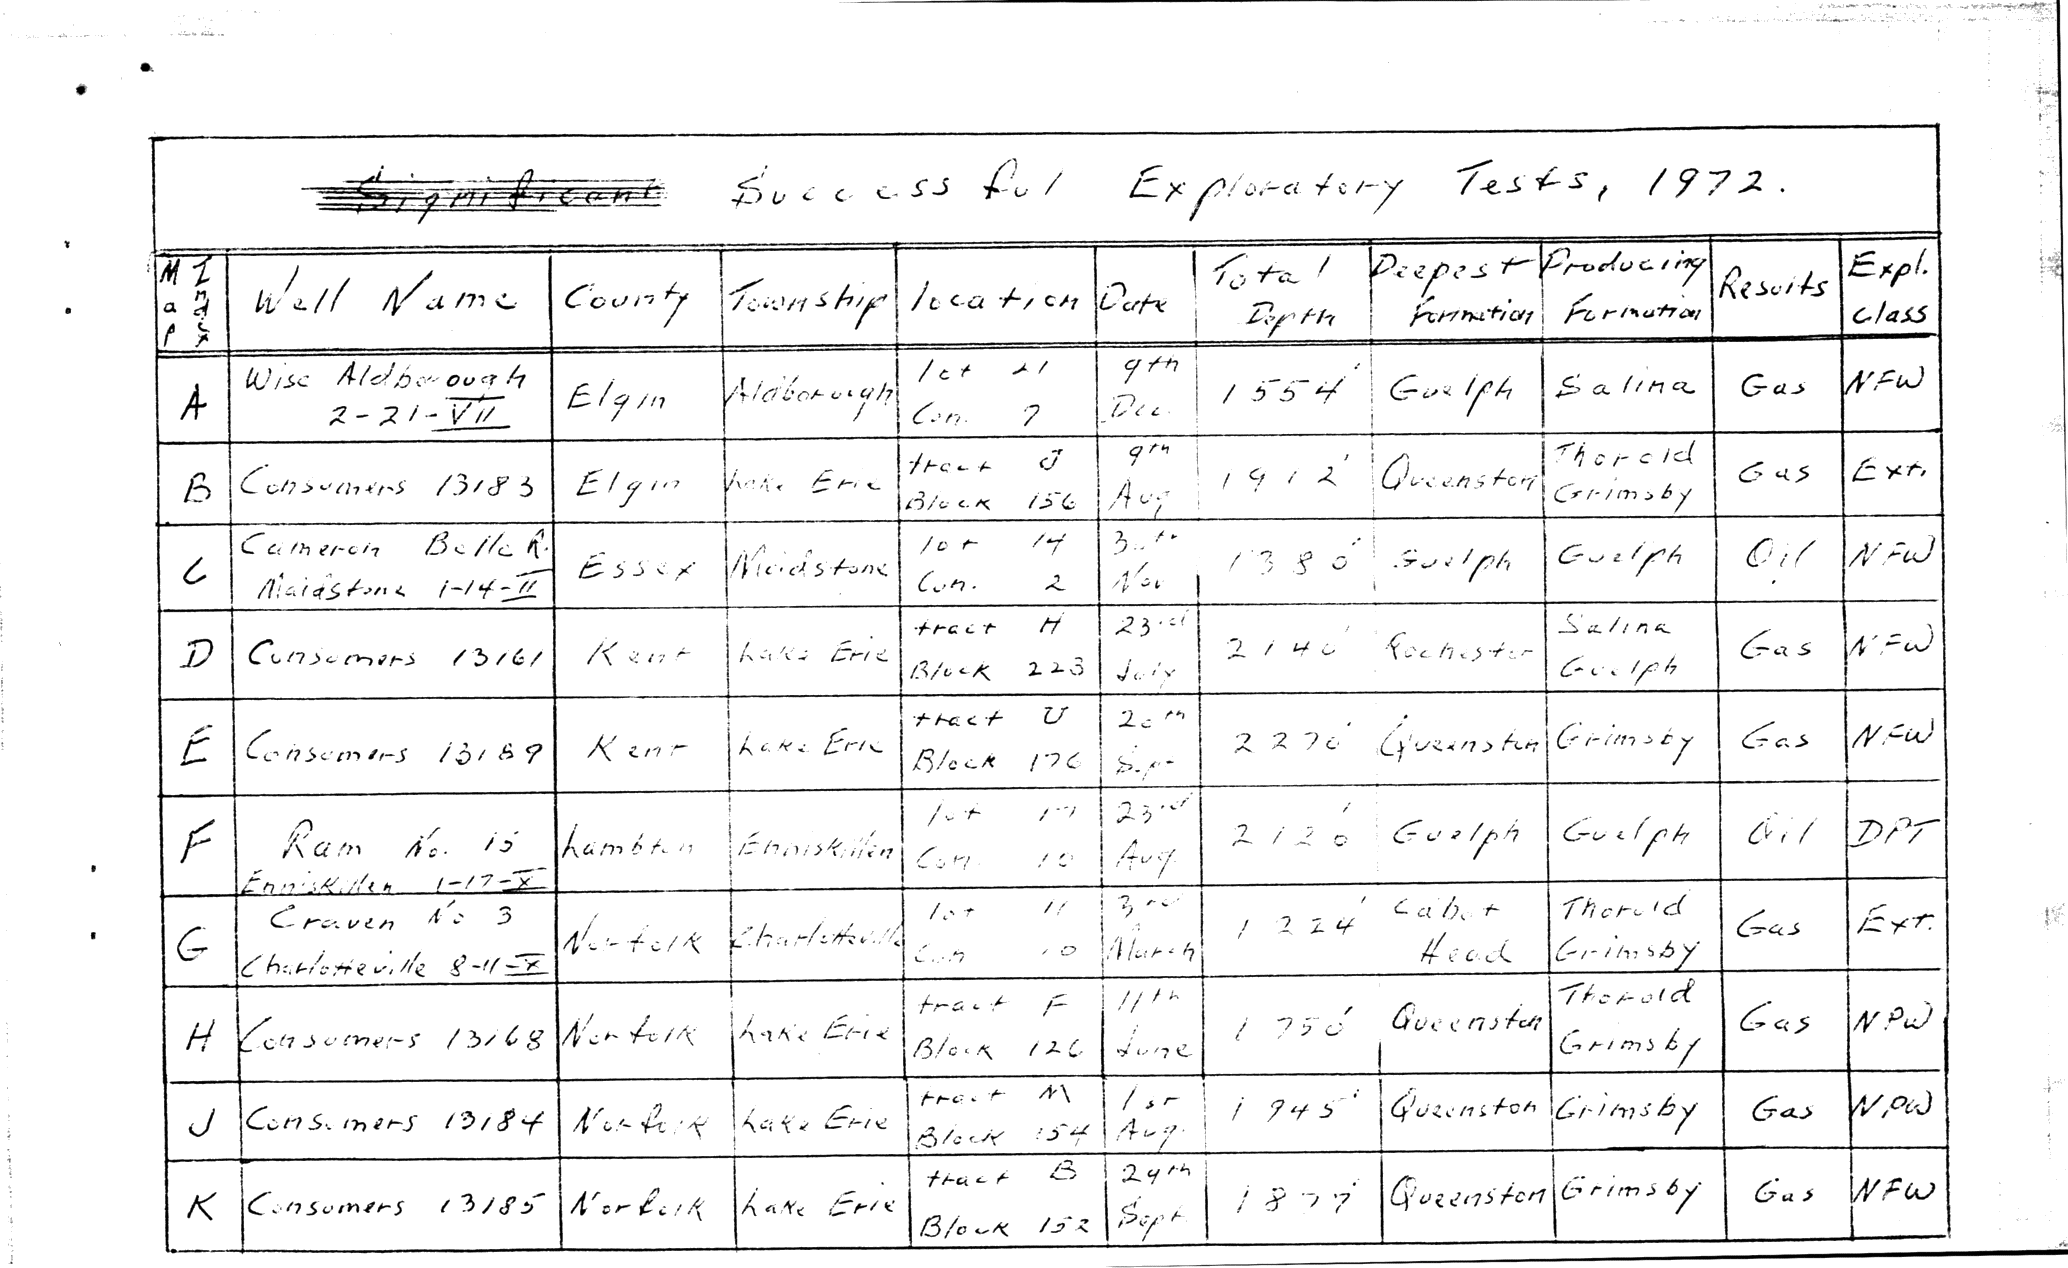 Significant Successful Exploratory Tests, 1972.
Map Index Well Name County Township location Date Total Depth Deepest Formation Producing Formation Results Expl. class
A Wise Aldborough 2-21-VII Elgin Aldborough lot 21 Con. 7 9th Dec. 1554' Guelph Salina Gas NFW
B Consumers 13183 Elgin Lake Erie tract J Block 156 9th Aug 1912' Queenston Thorold Grimsby Gas Ext.
C Cameron Belle R. Maidstone 1-14-II Essex Maidstone lot 14 Con. 2 30th Nov 1380' Guelph Guelph Oil NFW
D Consumers 13161 Kent Lake Erie tract H Block 223 23rd July 2140' Rochester Salina Guelph Gas NFW
E Consumers 13189 Kent Lake Erie tract U Block 176 20th Sept 2270' Queenston Grimsby Gas NFW
F Ram No. 15 Enniskillen 1-17-X Lambton Enniskillen lot 17 Con. 10 23rd Aug. 2120' Guelph Guelph Oil DPT
G Craven No 3 Charlotteville 8-11-X Norfolk Charlotteville lot 11 Con 10 3rd March 1224' Cabot Head Thorold Grimsby Gas Ext.
H Consumers 13168 Norfolk Lake Erie tract F Block 126 11th June 1750' Queenston Thorold Grimsby Gas NPW
J Consumers 13184 Norfolk Lake Erie tract M Block 154 1st Aug. 1945' Queenston Grimsby Gas NPW
K Consumers 13185 Norfolk Lake Erie tract B Block 152 29th Sept. 1877' Queenston Grimsby Gas NFW